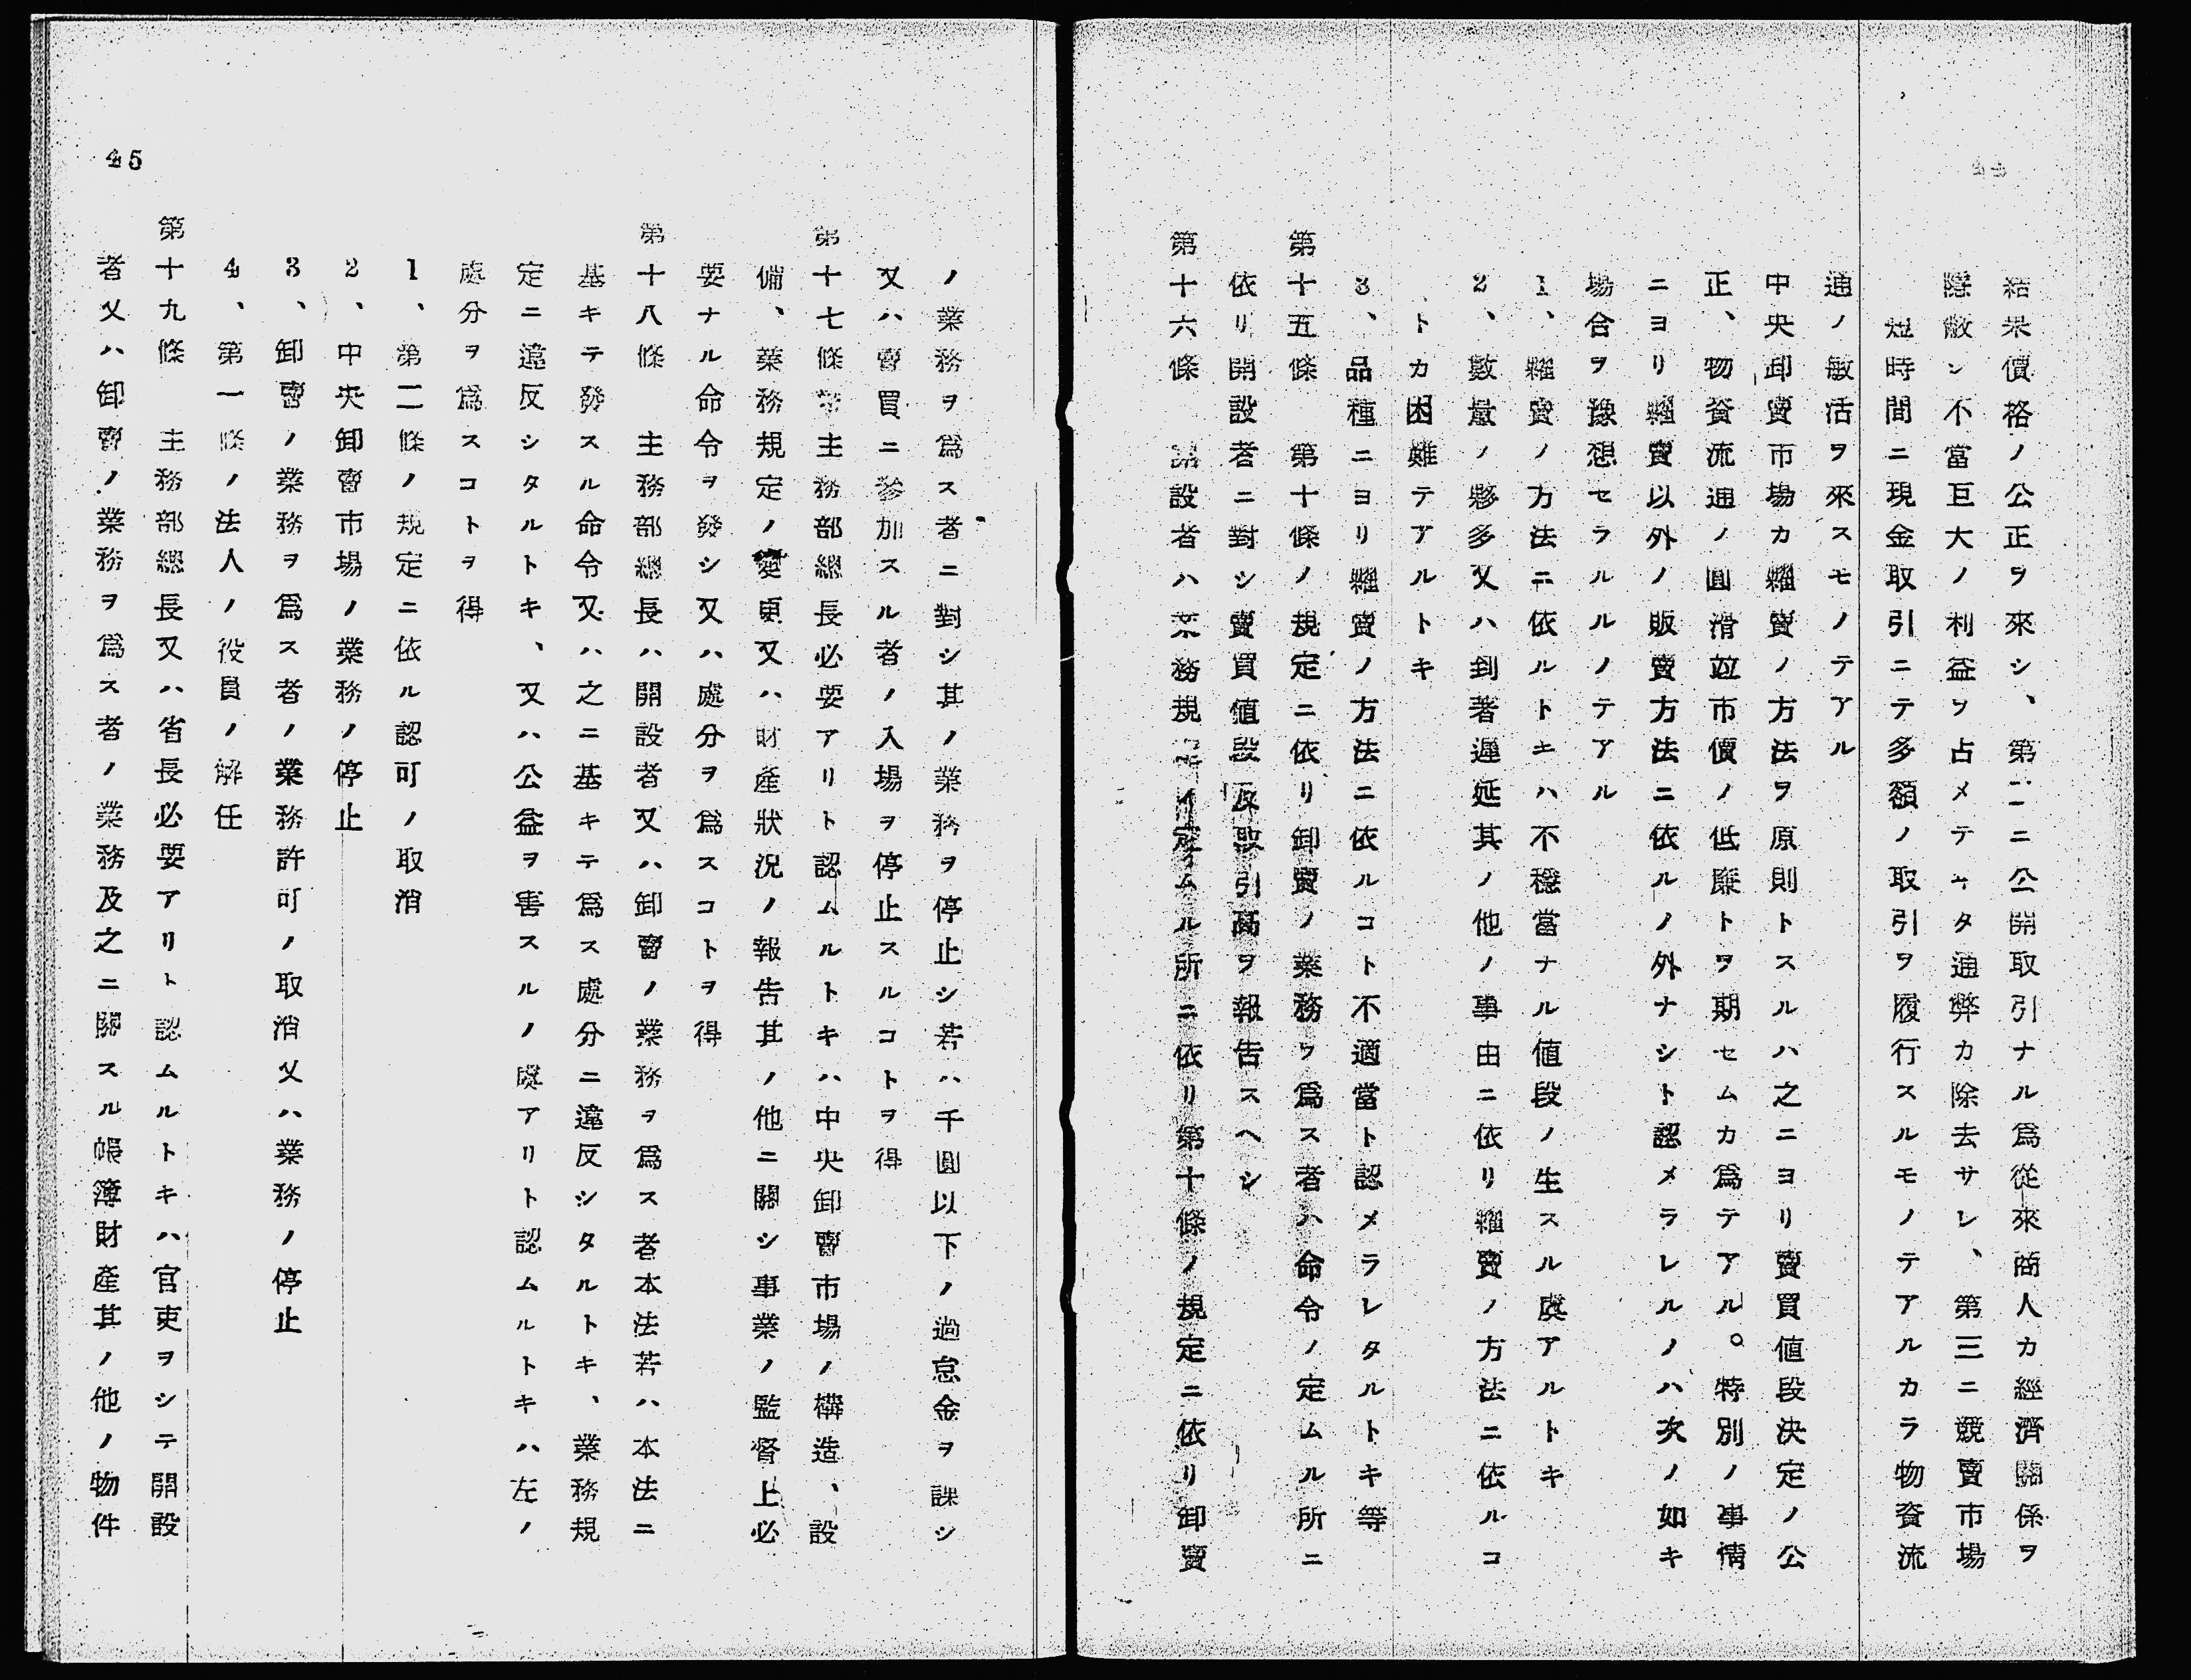 結果價格ノ公正ヲ來シ、第二ニ公開取引ナル爲從來商人カ經濟關係ヲ
隱蔽シ不當巨大ノ利益ヲ占メテヰタ通弊カ除去サレ、第三ニ競賣市場
短時間ニ現金取引ニテ多額ノ取引ヲ履行スルモノテアルカラ物資流
通ノ敏活ヲ來スモノテアル
中央卸賣市場カ糶賣ノ方法ヲ原則トスルハ之ニヨリ賣買値段決定ノ公
正、物資流通ノ圓滑竝市價ノ低廉トヲ期セムカ爲テアル。特別ノ事情
ニヨリ糶賣以外ノ販賣方法ニ依ルノ外ナシト認メラレルノハ次ノ如キ
場合ヲ豫想セラルルノテアル
1、糶賣ノ方法ニ依ルトキハ不穩當ナル値段ノ生スル虞アルトキ
2、數量ノ夥多又ハ到著遲延其ノ他ノ事由ニ依リ糶賣ノ方法ニ依ルコ
トカ困難テアルトキ
3、品種ニヨリ糶賣ノ方法ニ依ルコト不適當ト認メラレタルトキ等
第十五條　第十條ノ規定ニ依リ卸賣ノ業務ヲ爲ス者ハ命令ノ定ムル所ニ
依リ開設者ニ對シ賣買値段及取引高ヲ報告スヘシ
第十六條　開設者ハ業務規定ノ定ムル所ニ依リ第十條ノ規定ニ依リ卸賣
ノ業務ヲ爲ス者ニ對シ其ノ業務ヲ停止シ若ハ千圓以下ノ過怠金ヲ課シ
又ハ賣買ニ參加スル者ノ入場ヲ停止スルコトヲ得
第十七條　主務部總長必要アリト認ムルトキハ中央卸賣市場ノ構造、設
備、業務規定ノ變更又ハ財產狀況ノ報告其ノ他ニ關シ事業ノ監督上必
要ナル命令ヲ發シ又ハ處分ヲ爲スコトヲ得
第十八條　主務部總長ハ開設者又ハ卸賣ノ業務ヲ爲ス者本法若ハ本法ニ
基キテ發スル命令又ハ之ニ基キテ爲ス處分ニ違反シタルトキ、業務規
定ニ違反シタルトキ、又ハ公益ヲ害スルノ虞アリト認ムルトキハ左ノ
處分ヲ爲スコトヲ得
1、第二條ノ規定ニ依ル認可ノ取消
2、中央卸賣市場ノ業務ノ停止
3、卸賣ノ業務ヲ爲ス者ノ業務許可ノ取消又ハ業務ノ停止
4、第一條ノ法人ノ役員ノ解任
第十九條　主務部總長又ハ省長必要アリト認ムルトキハ官吏ヲシテ開設
者又ハ卸賣ノ業務ヲ爲ス者ノ業務及之ニ關スル帳簿財產其ノ他ノ物件
45